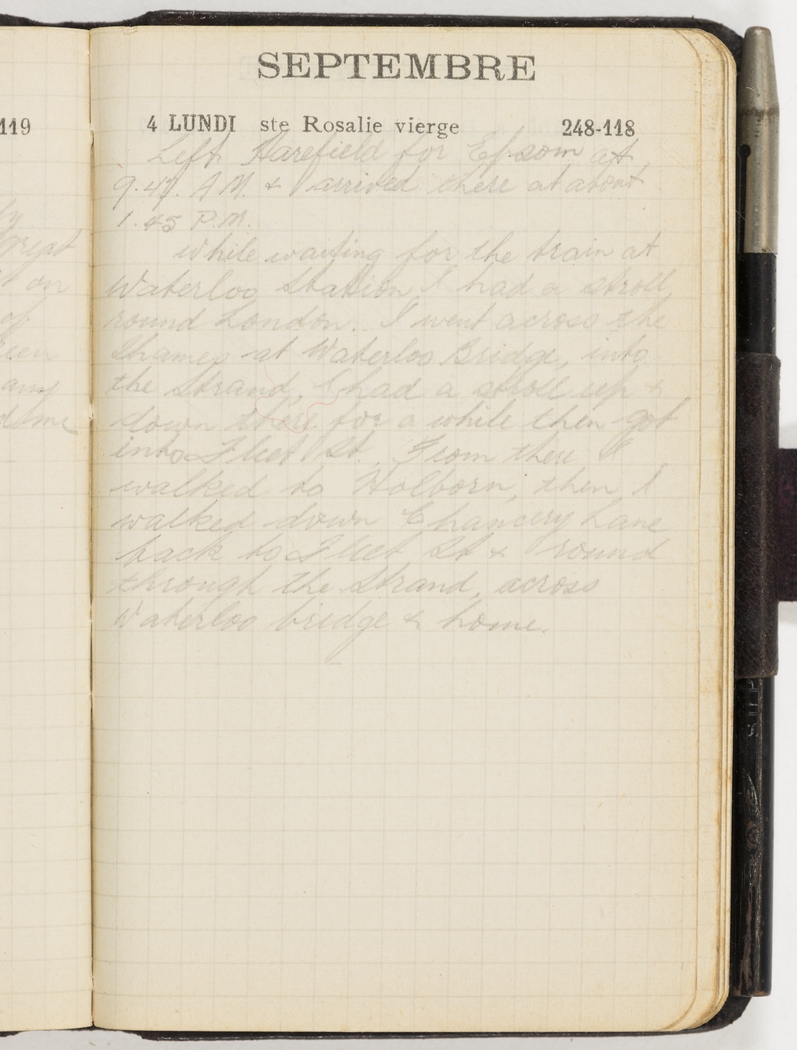 119
SEPTEMBRE
4 LUNDI ste Rosalie vierge 248-118
Left Harefield for Epsom at
9.47. A.M. & arrived there at about
1.45 P.M.
While waiting for the train at
Waterloo Station I had a stroll
round London. I went across the
Thames at Waterloo Bridge, into
the Strand, I had a stroll up &
down there for a while then got
into Fleet St. From there I
walked to Holborn, then I
walked down Chancery Lane
back to Fleet St & round
through the Strand, across
Waterloo bridge & home.
on
of
any